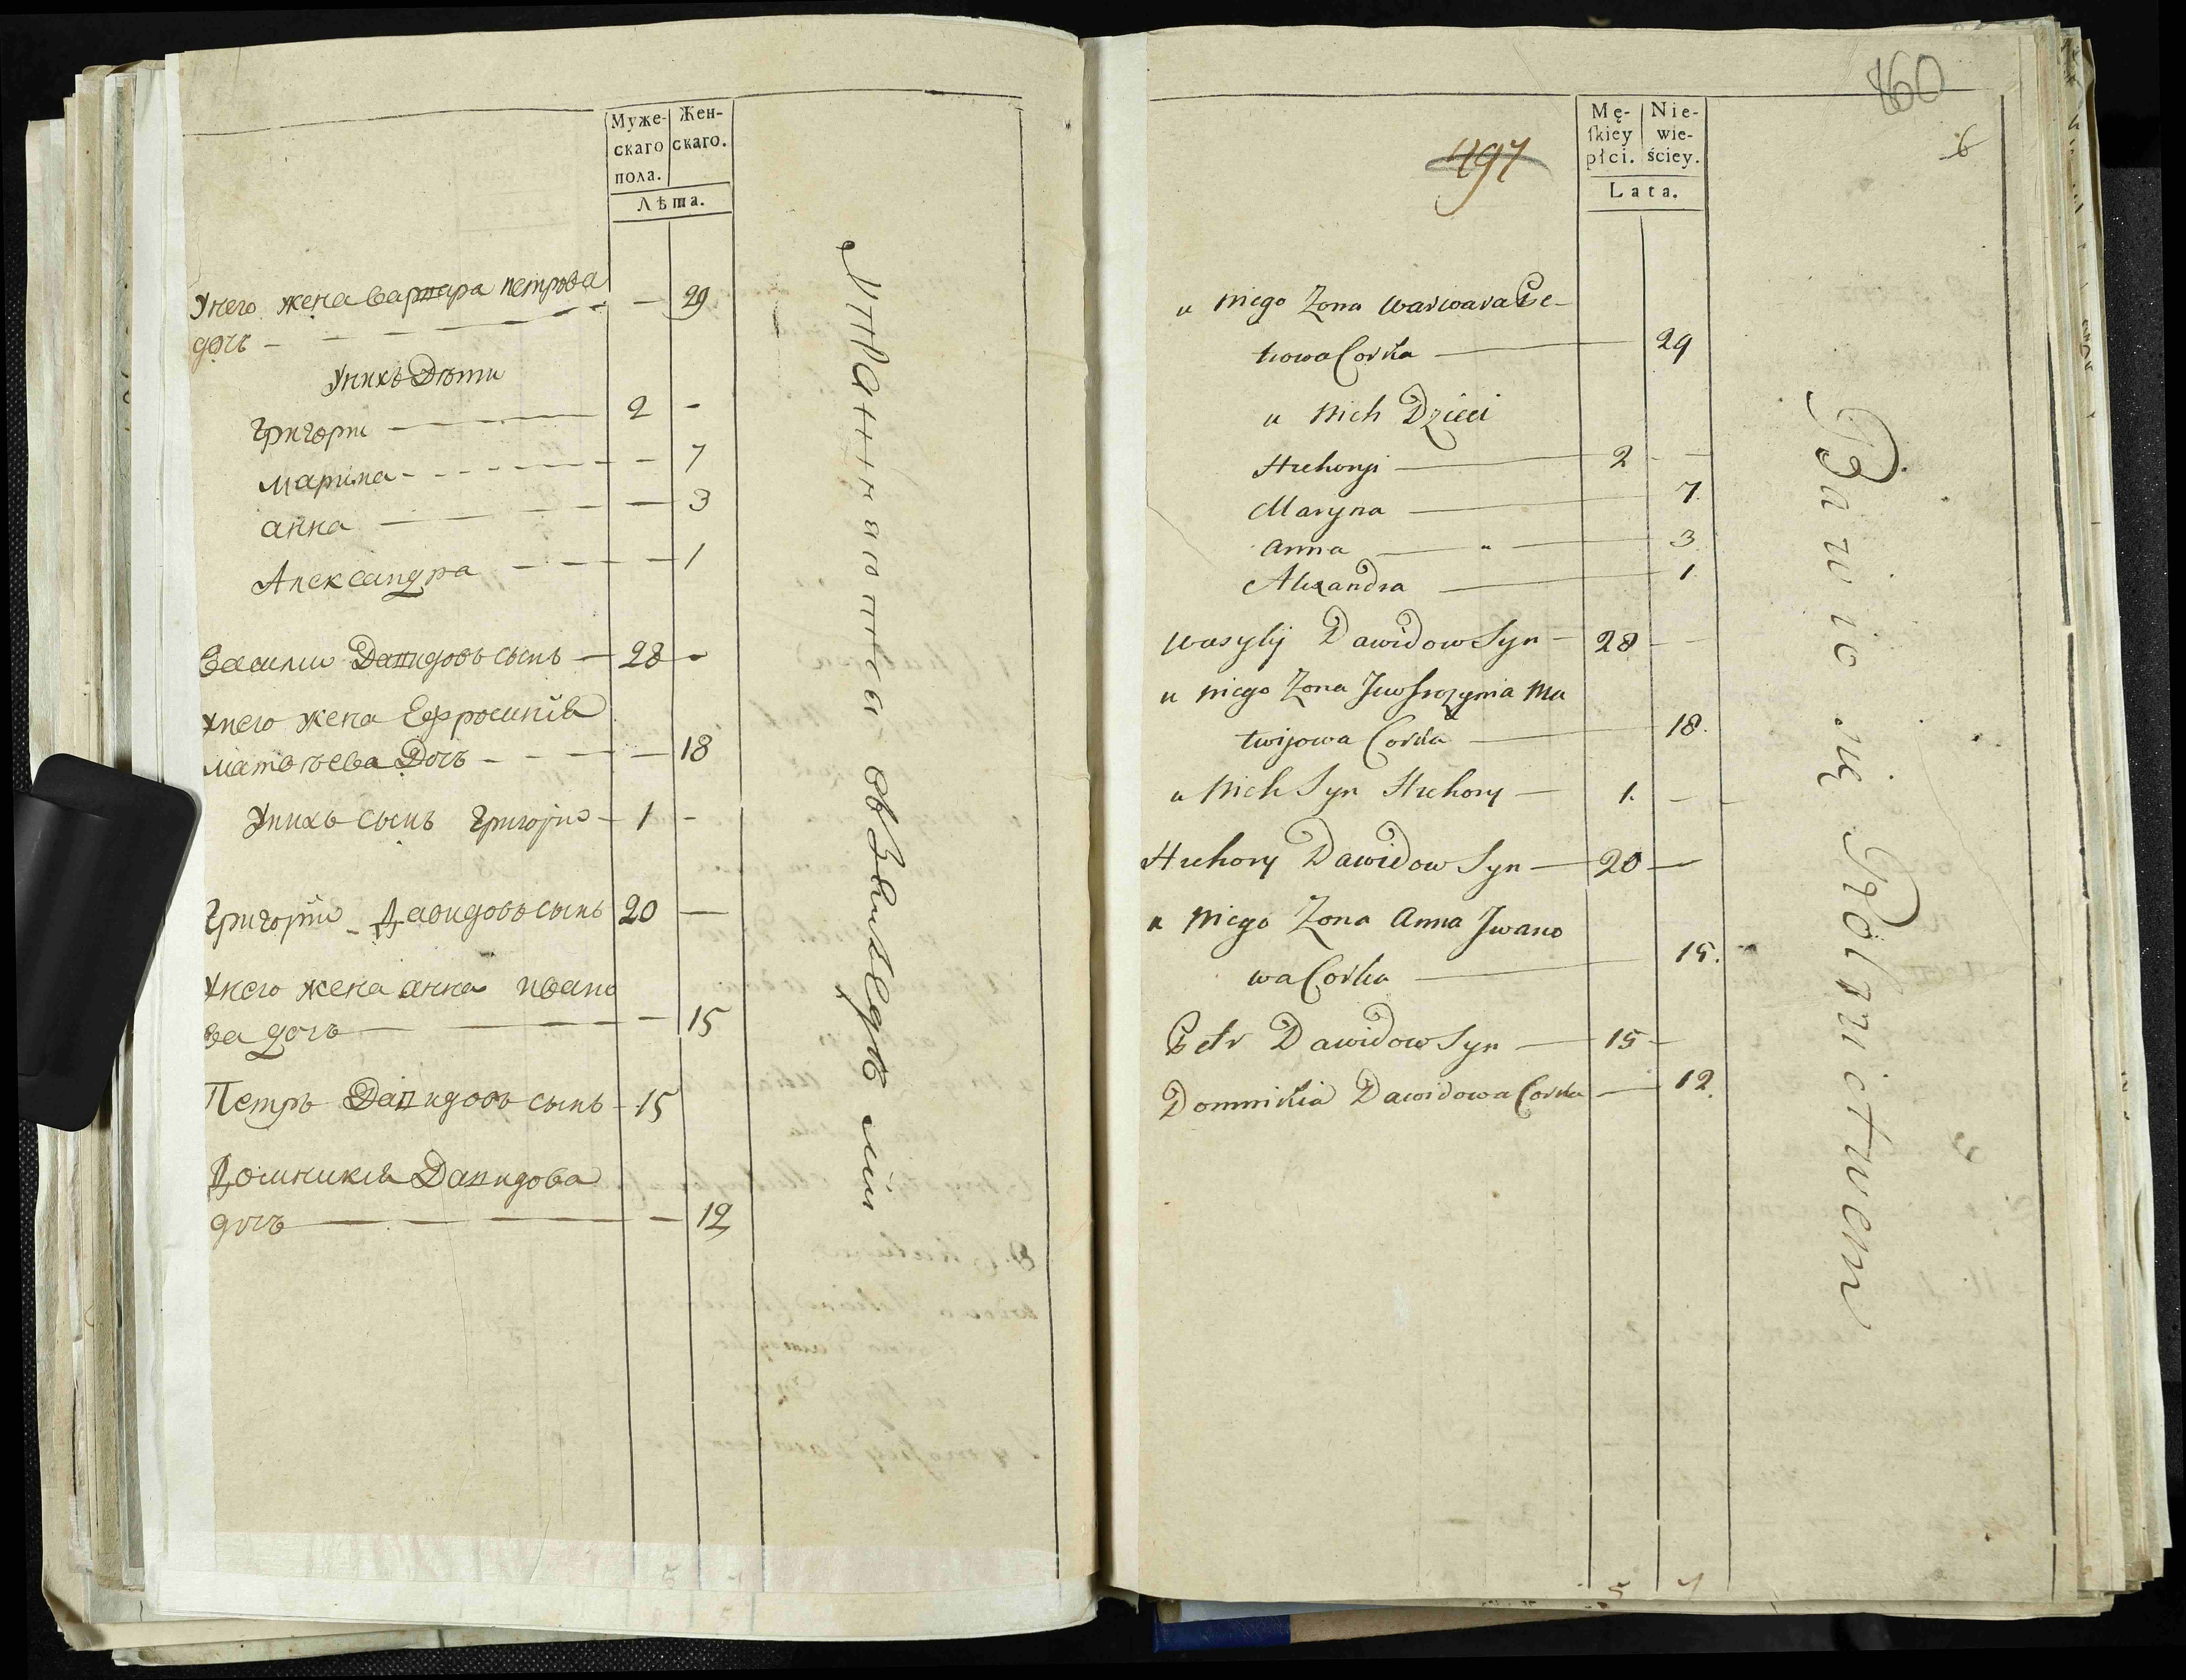 Муже-
скаго
пола.
Жен-
скаго.
Лѣта.
Унего жена варвара петрова
дочь - - - - - 29
Унихъ Дѣти
григори - 2 -
марина - - 7
анна - - 3
Александра - - 1
Василии Давидовъ сынъ - 28 -
Унего жена Ефросинiя
матвѣева Дочь - - 18
Унихъ сынъ григорiи - 1 -
Григорiи Давидовъ сынъ 20 -
Унего жена анна ивано
ва дочь - - 15
Петръ Давидовъ сынъ - 15
Домникия Давидова
дочь - - 12
земледѣ
860
6
497
Mę-
ſkiey
płci.
Nie-
wie-
ściey.
Lata.
u niego Zona Warwara Pe-
trowa Corka - 29
u nich Dzieci
Hrehory - 2 - -
Maryna - 7.
Anna - 3
Alexandra - 1.
Wasylij Dawidow Syn - 28 - -
u niego Zona Jewfrozynia Ma
twijowa Corka - 18.
u nich Syn Hrehory - 1. - -
Hrehory Dawidow Syn - 20 -
u niego Zona Anna Jwano
wa Corka - 15.
Petr Dawidow Syn - 15 -
Domnikia Dawidowa Corka - 12.
5 7
Bawio się Rolnictwem